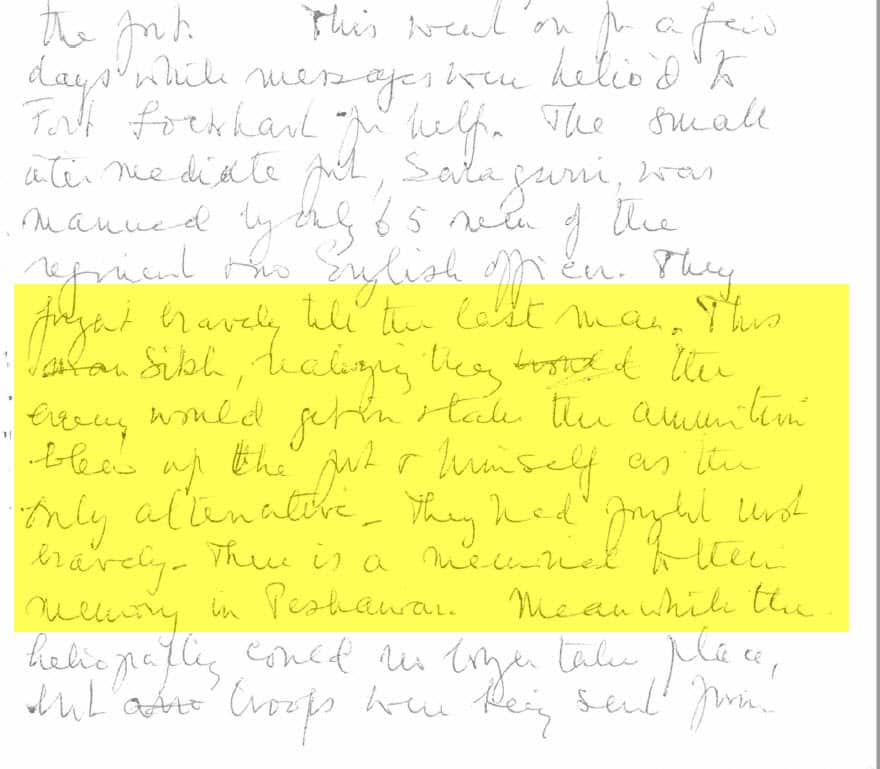 the fort. This went on for a few
days while messages were helio'd to
Fort Lockhart for help. The small
intermediate fort, Saragurri, was
manned by only 65 men of the
regiment & no English officer. They
fought bravely till the last man. This
man Sikh, realizing they would the
enemy would get in & take the ammunition
blew up the fort & himself as the
only alternative. They had fought most
bravely. There is a memorial to their
memory in Peshawar. Meanwhile the
heliographing could no longer take place,
but troops were being sent from